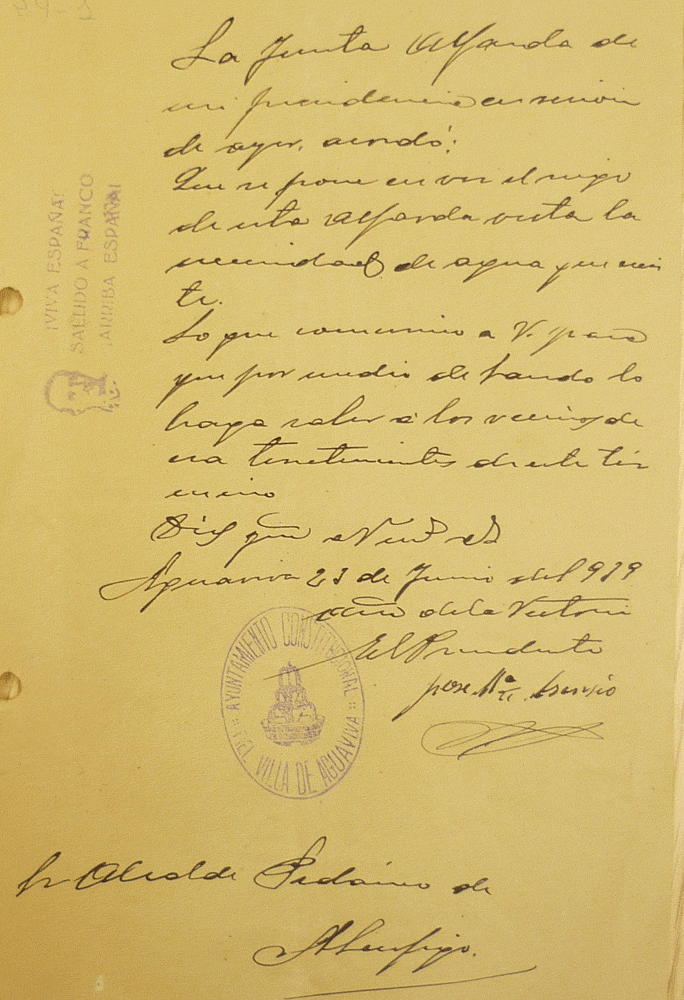 La Junta Alfarda de
mi presidencia en sesion
de ayer, acordó:
Que se pone en vor el riego
de esta Alfarda vista la
necesidad de agua que exis
te.
Lo que comunico a V. para
que por medio de bando lo
haga saber a los vecinos de
esa terratenientes de este tér
mino
Dios gue a Vd
Aguaviva 23 de Junio del 939
año de la Victoria
El Presidente
jose Mª Asensio
Sr Alcalde Pedáneo de
¡VIVA ESPAÑA!
SALUDO A FRANCO
¡ARRIBA ESPAÑA!
AYUNTAMIENTO CONSTITUCIONAL
DE L. VILLA DE AGUAVIVA